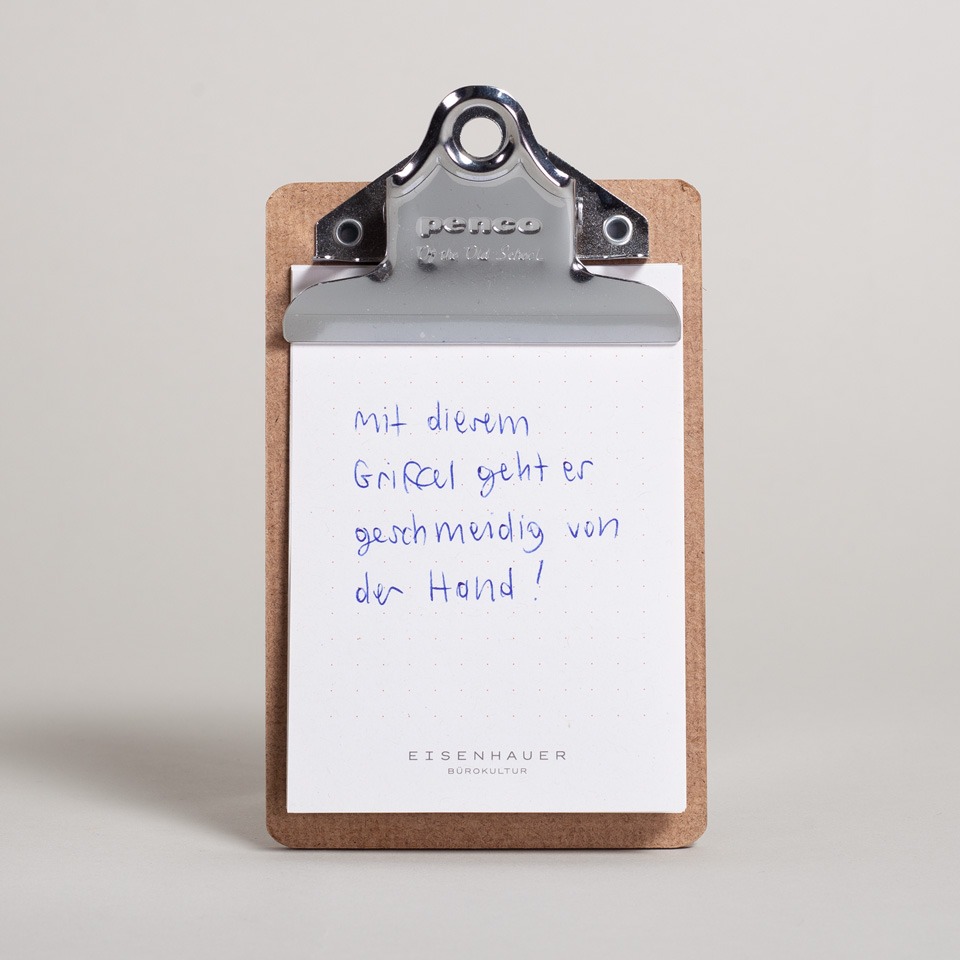 penco
Of the Old School.
mit diesem
Griffel geht es
geschmeidig von
der Hand!
EISENHAUER
BÜROKULTUR